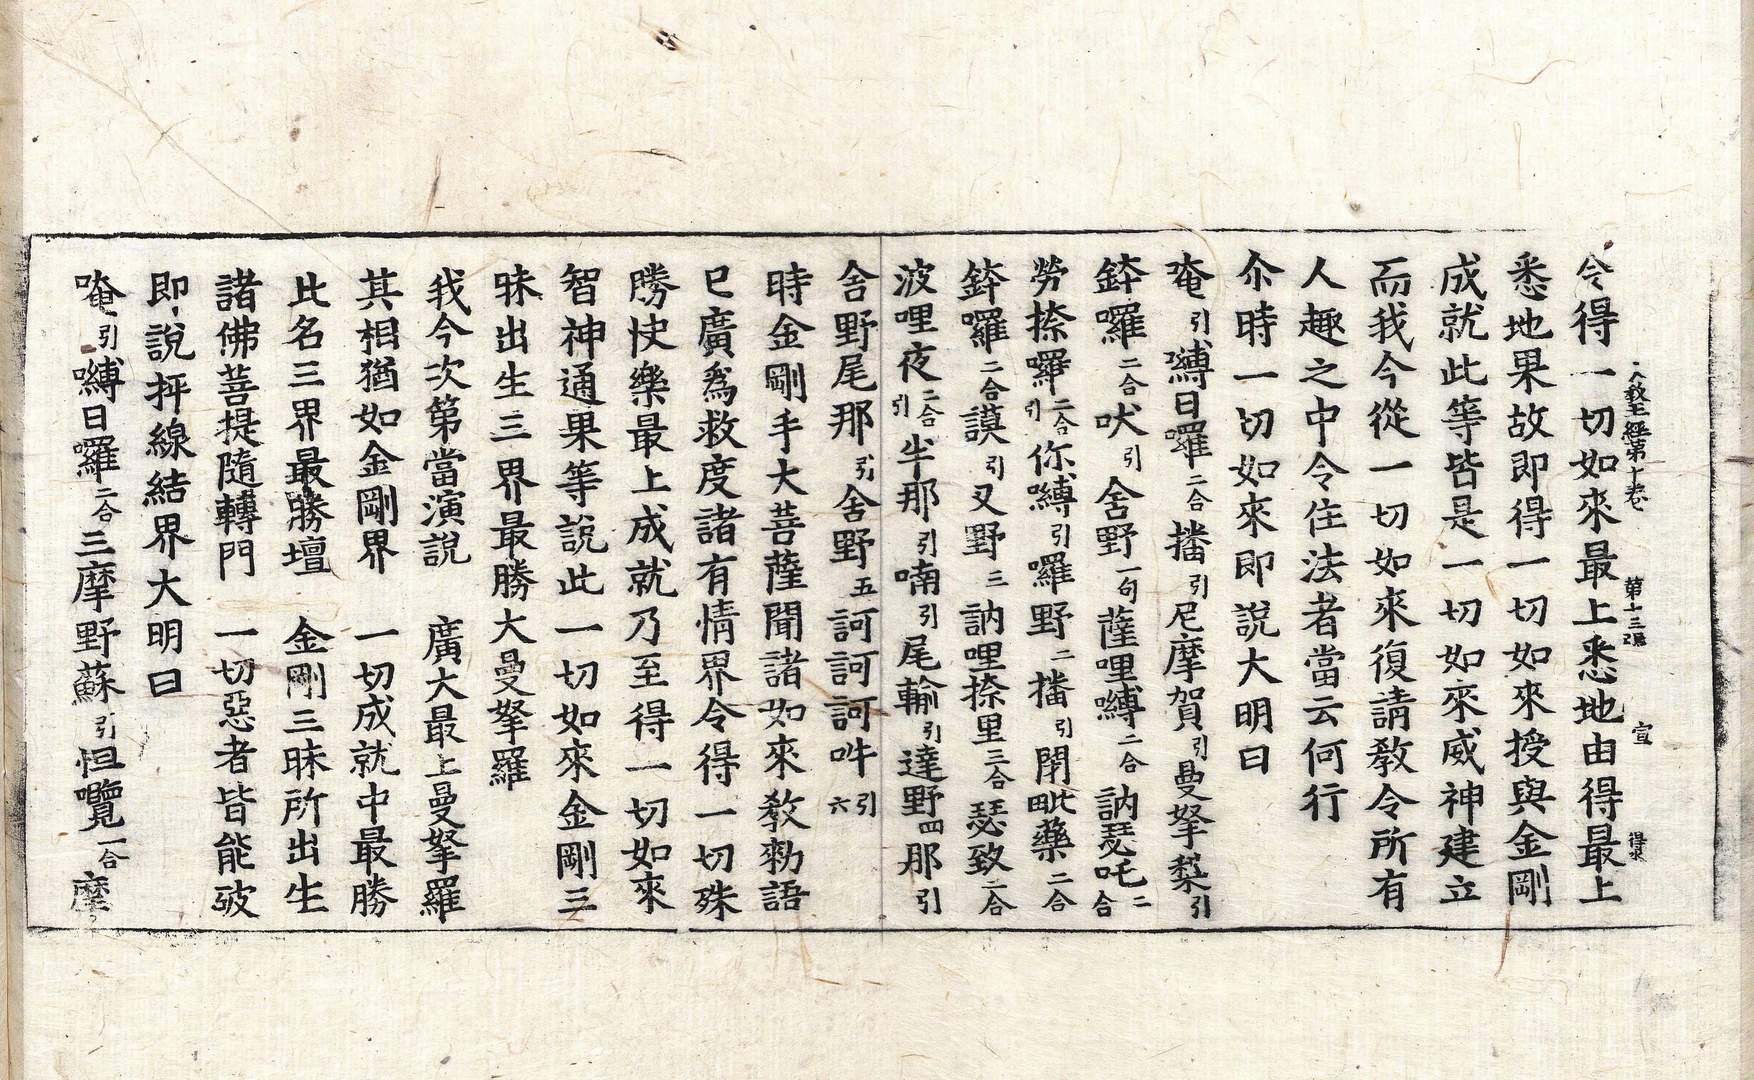 大敎王經第十卷 第十三張 宣
令得一切如來最上悉地由得最上
悉地果故即得一切如來授與金剛
成就此等皆是一切如來威神建立
而我今從一切如來復請敎令所有
人趣之中令住法者當云何行
尒時一切如來即說大明曰
唵引嚩日囉二合播引尼摩賀引曼拏梨引
鉢囉二合吠引舍野一句薩哩嚩二合訥瑟吒二合
勞捺囉二合引你嚩引囉野二播引閉毗藥二合
鉢囉二合謨引叉野三訥哩捺里三合瑟致二合
波哩夜二合引半那引喃引尾輸引達野四那引
舍野尾那引舍野五訶訶訶吽引六
時金剛手大菩薩聞諸如來敎勑語
已廣爲救度諸有情界令得一切殊
勝快樂最上成就乃至得一切如來
智神通果等說此一切如來金剛三
昧出生三界最勝大曼拏羅
我今次第當演說 廣大最上曼拏羅
其相猶如金剛界 一切成就中最勝
此名三界最勝壇 金剛三昧所出生
諸佛菩提隨轉門 一切惡者皆能破
即說抨線結界大明曰
唵引嚩日囉二合三摩野蘇引怛囕二合摩